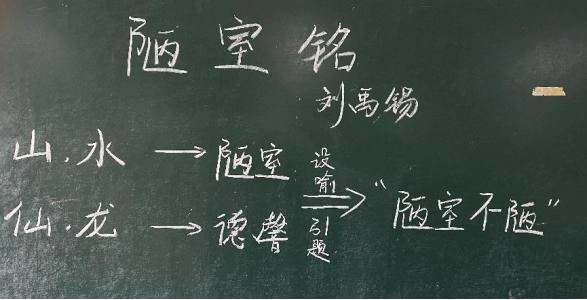 陋室铭
刘禹锡
山.水 → 陋室
仙.龙 → 德馨
设喻
引题
“陋室不陋”